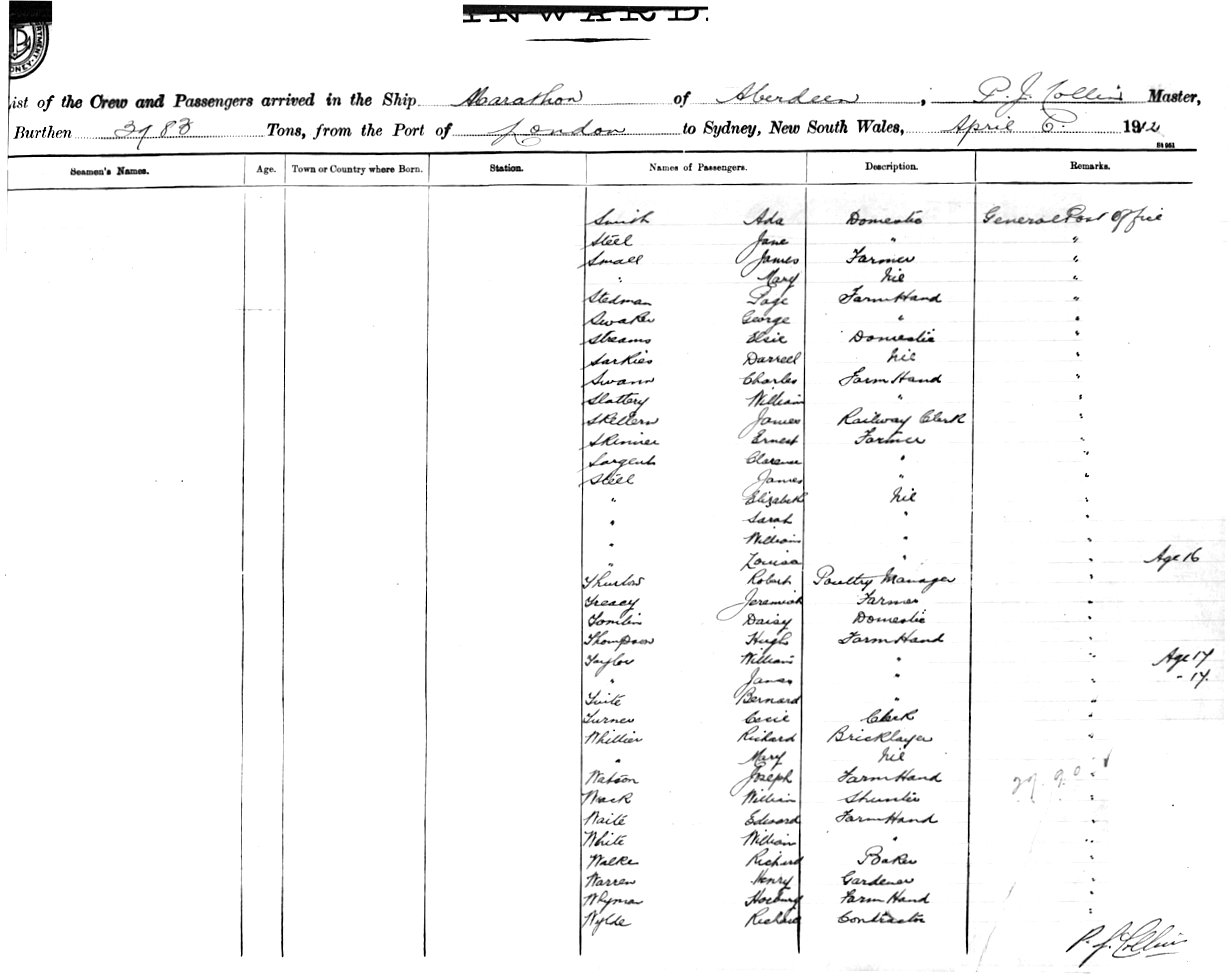 INWARD.
List of the Crew and Passengers arrived in the Ship Marathon of Aberdeen, P. J. Collins Master,
Burthen 3788 Tons, from the Port of London to Sydney, New South Wales, April 6. 1912
St 951
Seamen's Names. Age. Town or Country where Born. Station. Names of Passengers. Description. Remarks.
Smith Ada Domestic General Post Office
Steel Jane " "
Small James Farmer "
" Mary Nil "
Stedman Page Farm Hand "
Swaker George " "
Streams Elsie Domestic "
Sarkies Darrell Nil "
Swann Charles Farm Hand "
Slattery William " "
Skellern James Railway Clerk "
Skinner Ernest Farmer "
Sargent Clarence " "
Steel James " "
" Elizabeth Nil "
" Sarah " "
" William " "
" Louisa " " Age 16
Thurlow Robert Poultry Manager "
Treacy Jeremiah Farmer "
Tomlin Daisy Domestic "
Thompson Hugh Farm Hand "
Taylor William " " Age 17
" James " " - 17.
Tuite Bernard " "
Turner Cecil Clerk "
Whillier Richard Bricklayer "
" Mary Nil "
Watson Joseph Farm Hand "
Wack William Shunter "
Waite Edward Farm Hand "
White William " "
Walke Richard Baker "
Warren Henry Gardener "
Whyman Farm Hand "
Wylde Richard Contractor "
P. J. Collins